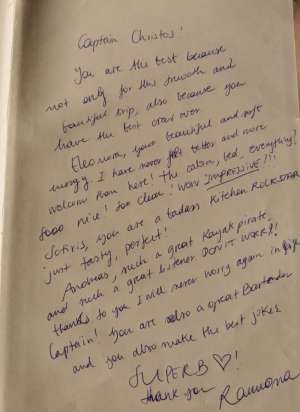 Captain Christos!
You are the best because
not only for this smooth and
beautiful trip, also because you
have the best crew ever
Eleonora, your beautiful and soft
energy. I have never felt better and more
welcome than here! The cabin, bed, everything!
sooo nice! so clean! wow IMPRESSIVE!!!
Sotiris, you are a badass kitchen ROCKSTAR
just tasty, perfect!
Andreas, such a great Kayak pirate
and such a great listener DON'T WORRY!
thanks to you I will never worry again in life
Captain! you are also a great Bartender
and you also make the best jokes
SUPERB ♡!
thank you Ramona